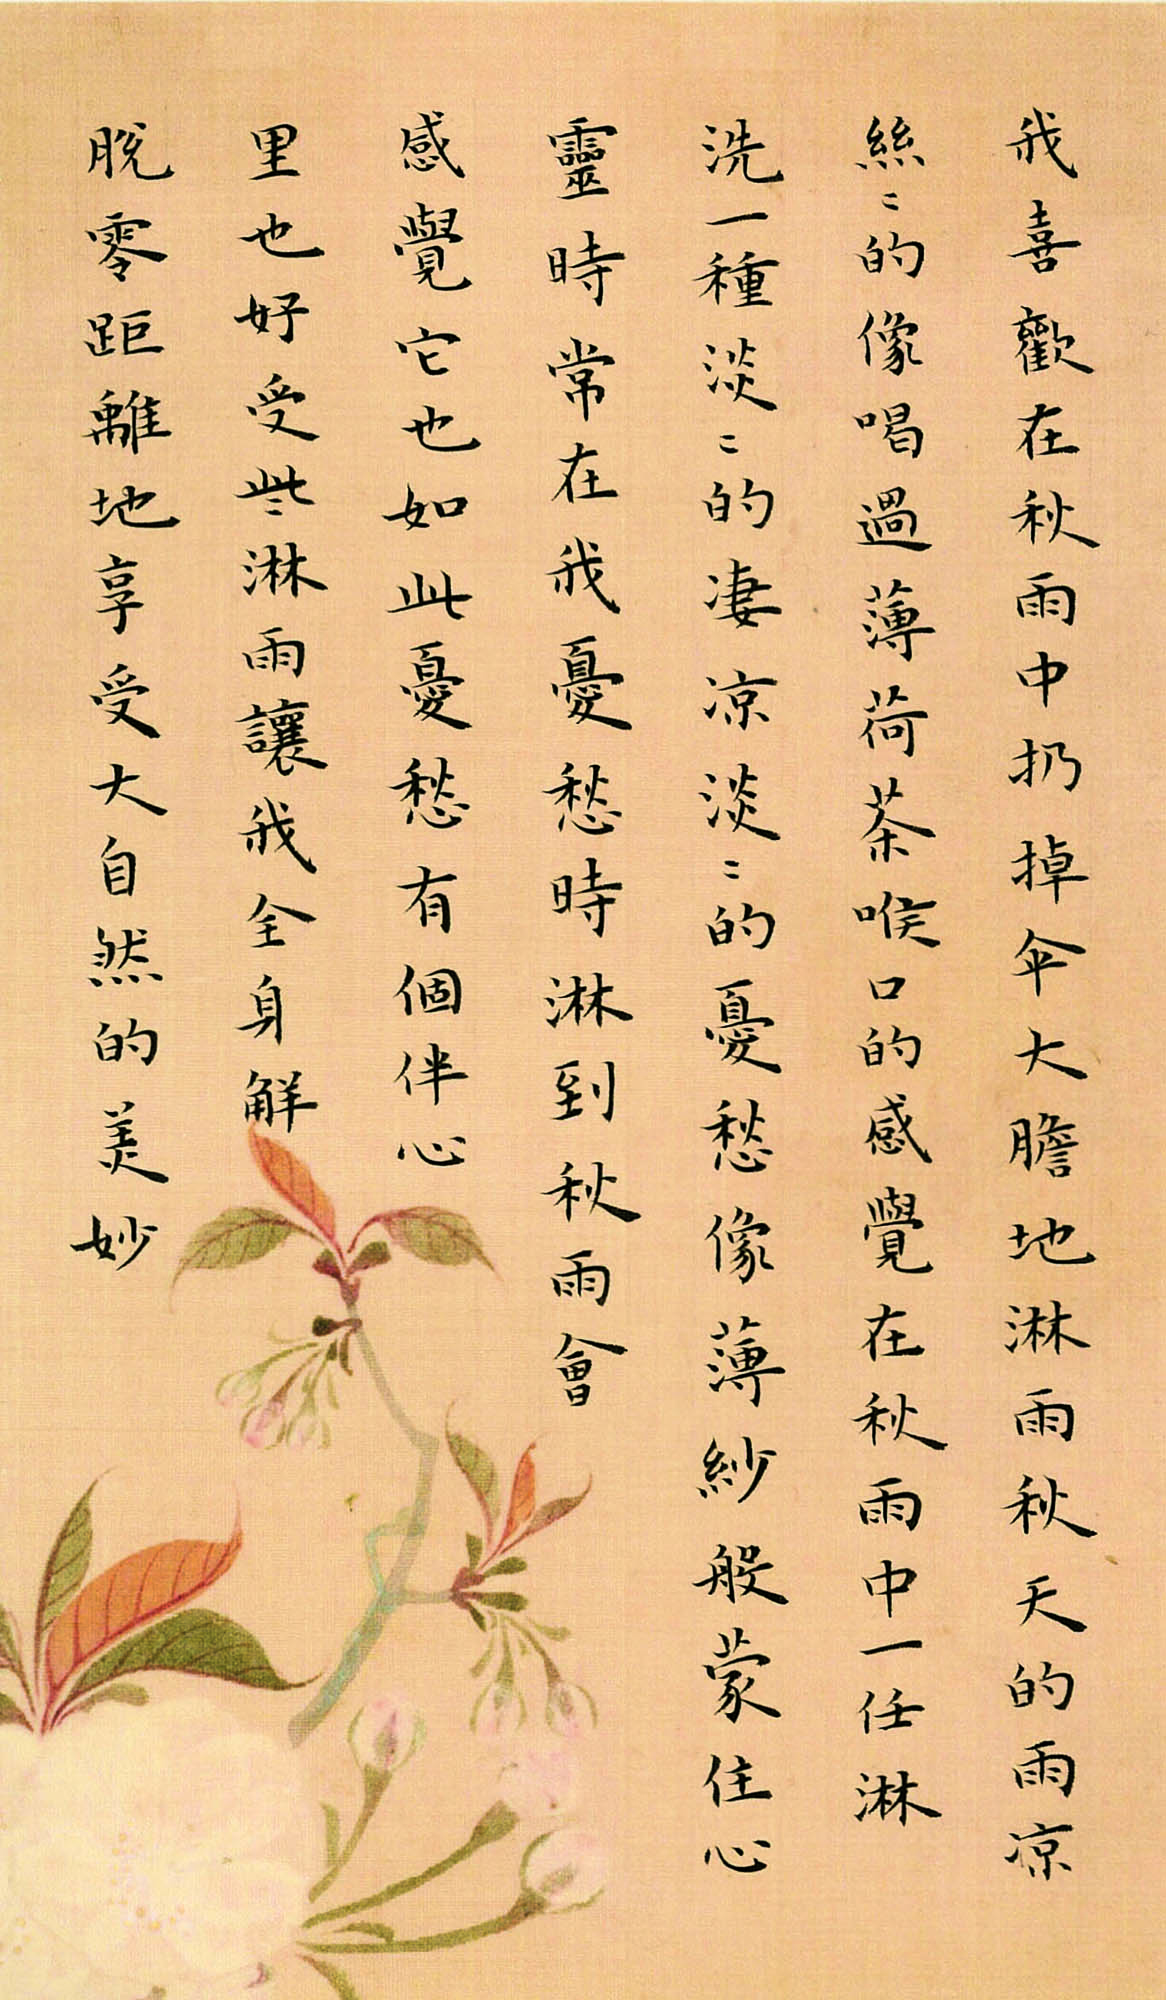 我喜歡在秋雨中扔掉伞大膽地淋雨秋天的雨凉
絲〻的像喝過薄荷茶喉口的感覺在秋雨中一任淋
洗一種淡〻的凄凉淡〻的憂愁像薄紗般蒙住心
靈時常在我憂愁時淋到秋雨會
感覺它也如此憂愁有個伴心
里也好受些淋雨讓我全身解
脫零距離地享受大自然的美妙